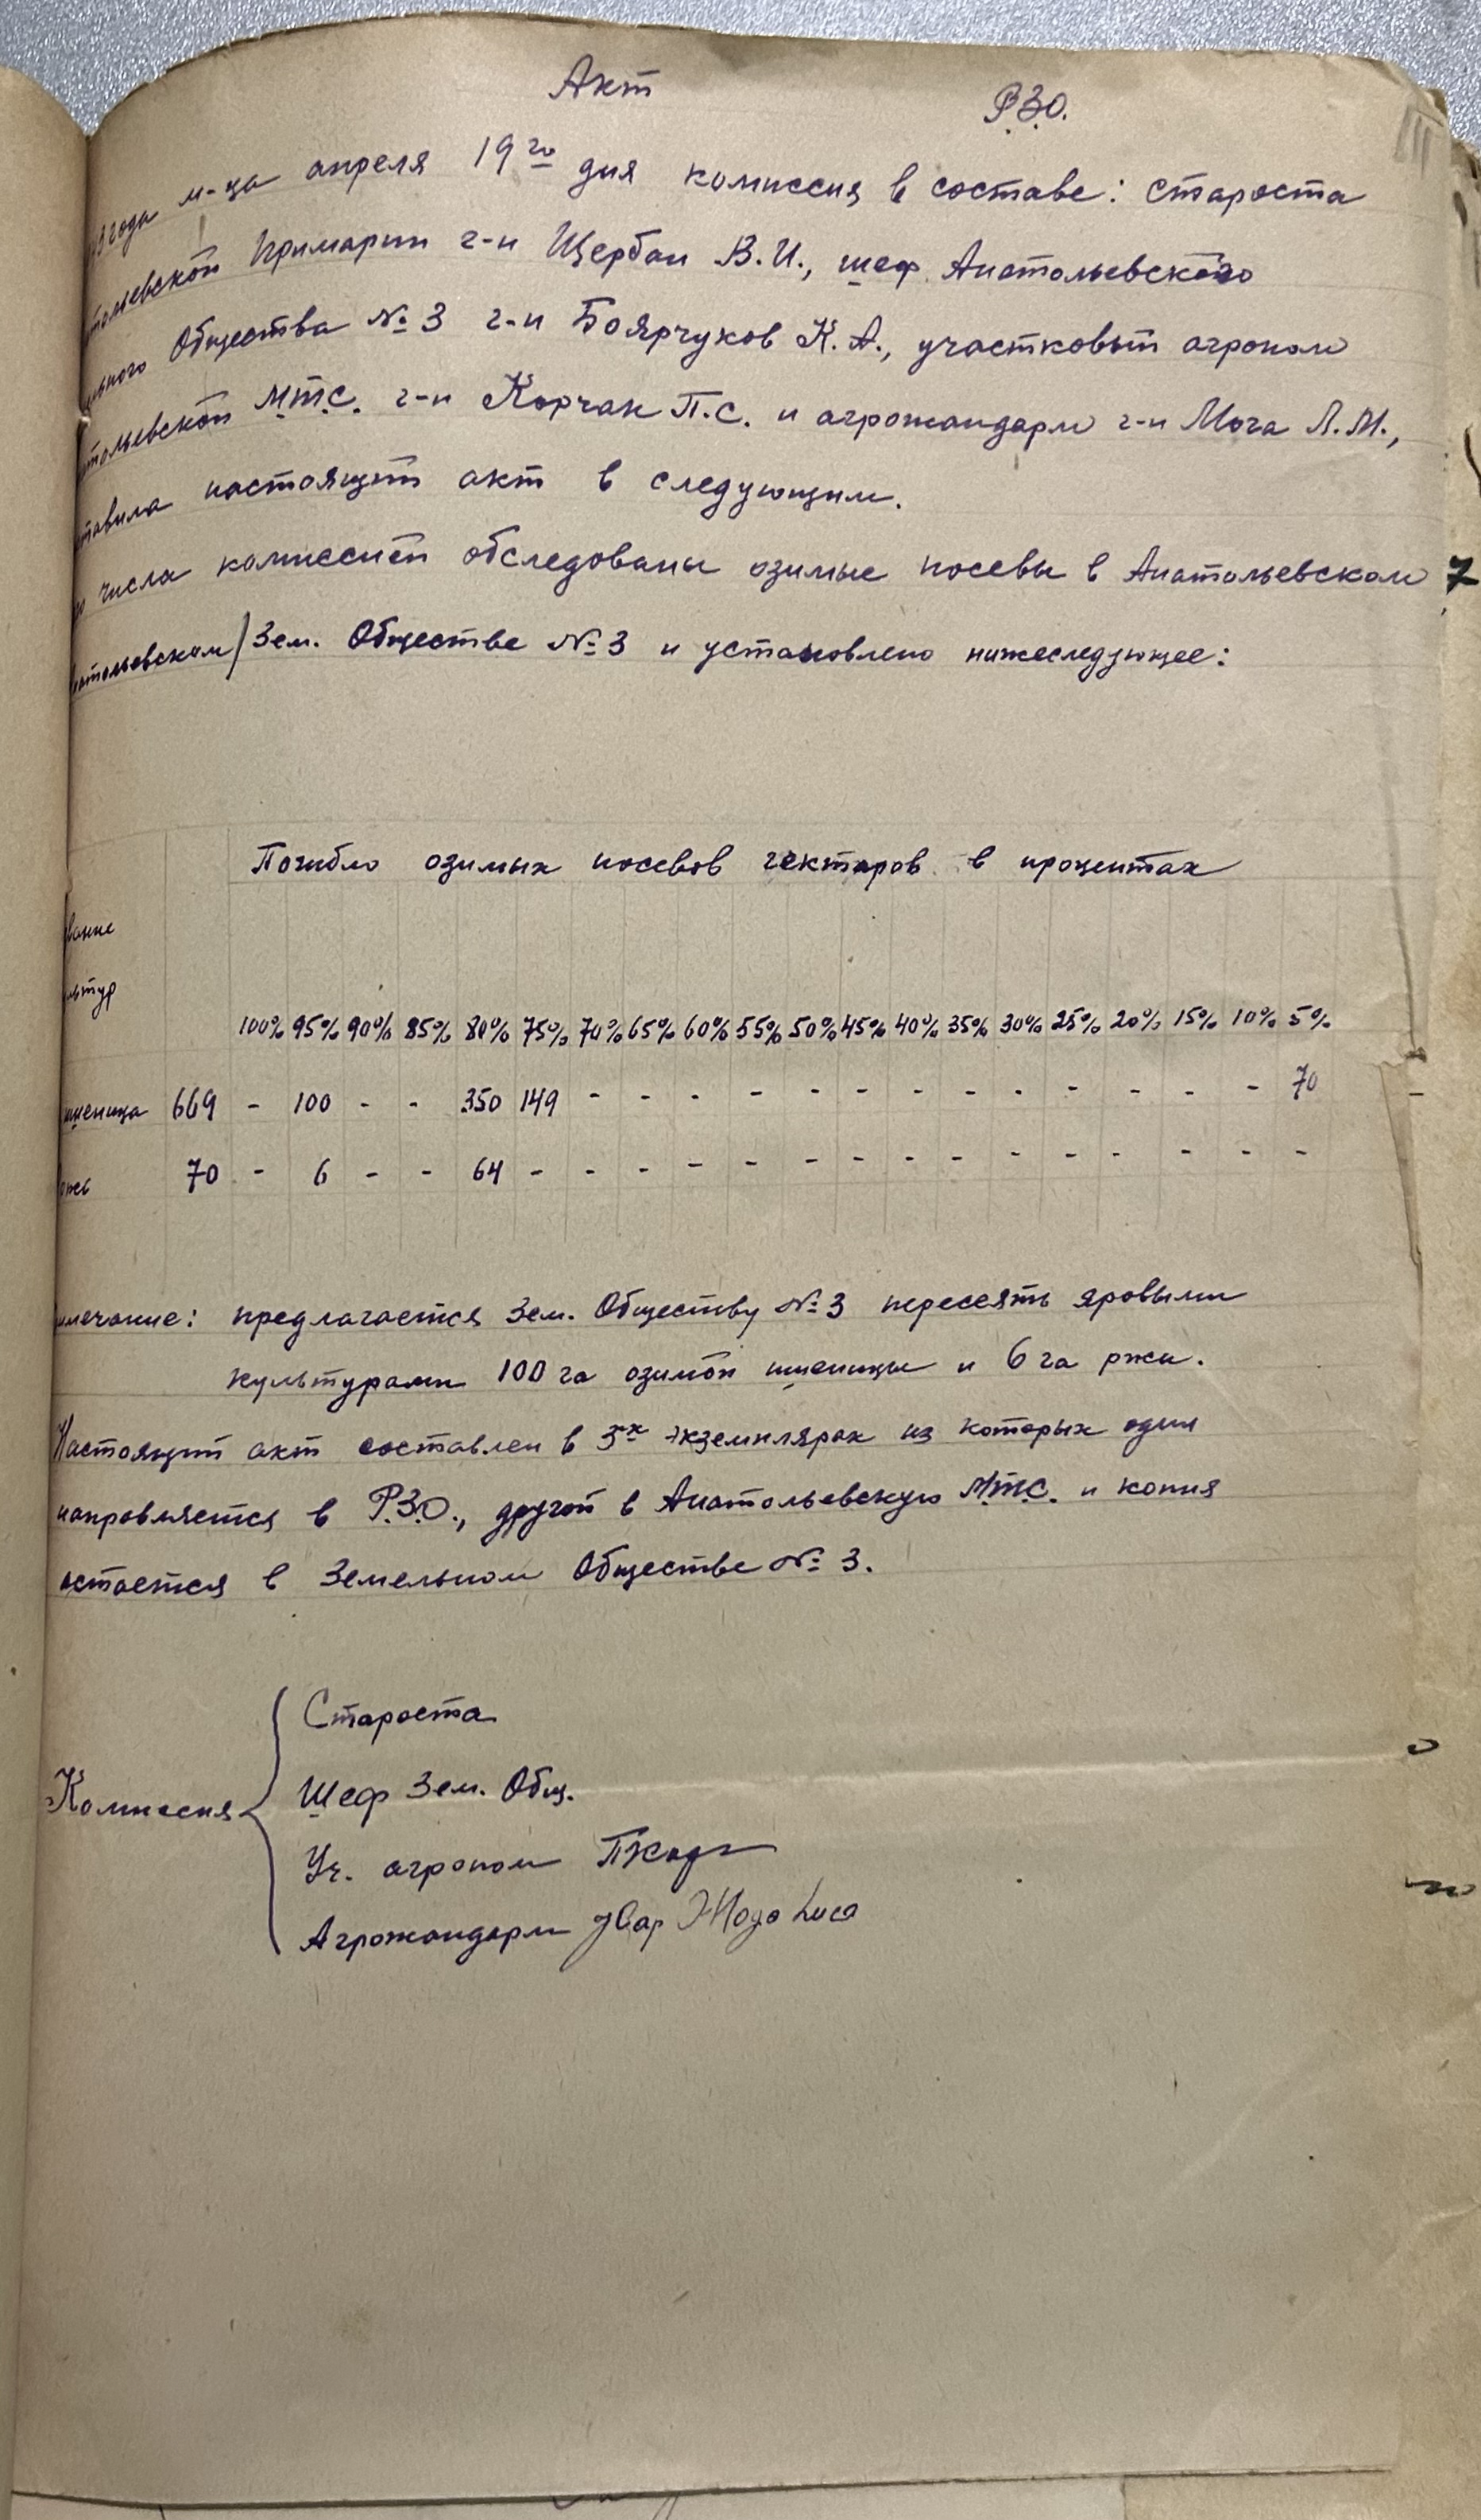 Акт
Р.З.О.
года м-ца апреля 19го дня комиссия в составе: староста
тольевской Примарии г-н Щербан В.И., шеф Анатольевского
льного Общества №3 г-н Боярчуков К.А., участковый агроном
тольевской М.Т.С. г-н Корчак П.С. и агрожандарм г-н Мога Л.М.,
ставила настоящий акт в следующим.
го числа комиссией обследованы озимые посевы в Анатольевском
натольевском/ Зем. Обществе №3 и установлено нижеследующее:
7
Погибло озимых посевов гектаров в процентах
вание
льтур
100% 95% 90% 85% 80% 75% 70% 65% 60% 55% 50% 45% 40% 35% 30% 25% 20% 15% 10% 5%
пшеница 669 - 100 - - 350 149 - - - - - - - - - - - - - 70
рожь 70 - 6 - - 64 - - - - - - - - - - - - - - -
имечание: предлагается Зем. Обществу №3 пересеять яровыми
культурами 100 га озимой пшеницы и 6 га ржи.
Настоящий акт составлен в 3х экземплярах из которых один
направляется в Р.З.О., другой в Анатольевскую М.Т.С. и копия
остается в Земельном Обществе №3.
Староста
Шеф Зем. Общ.
Комиссия
Уч. агроном
Агрожандарм Luca